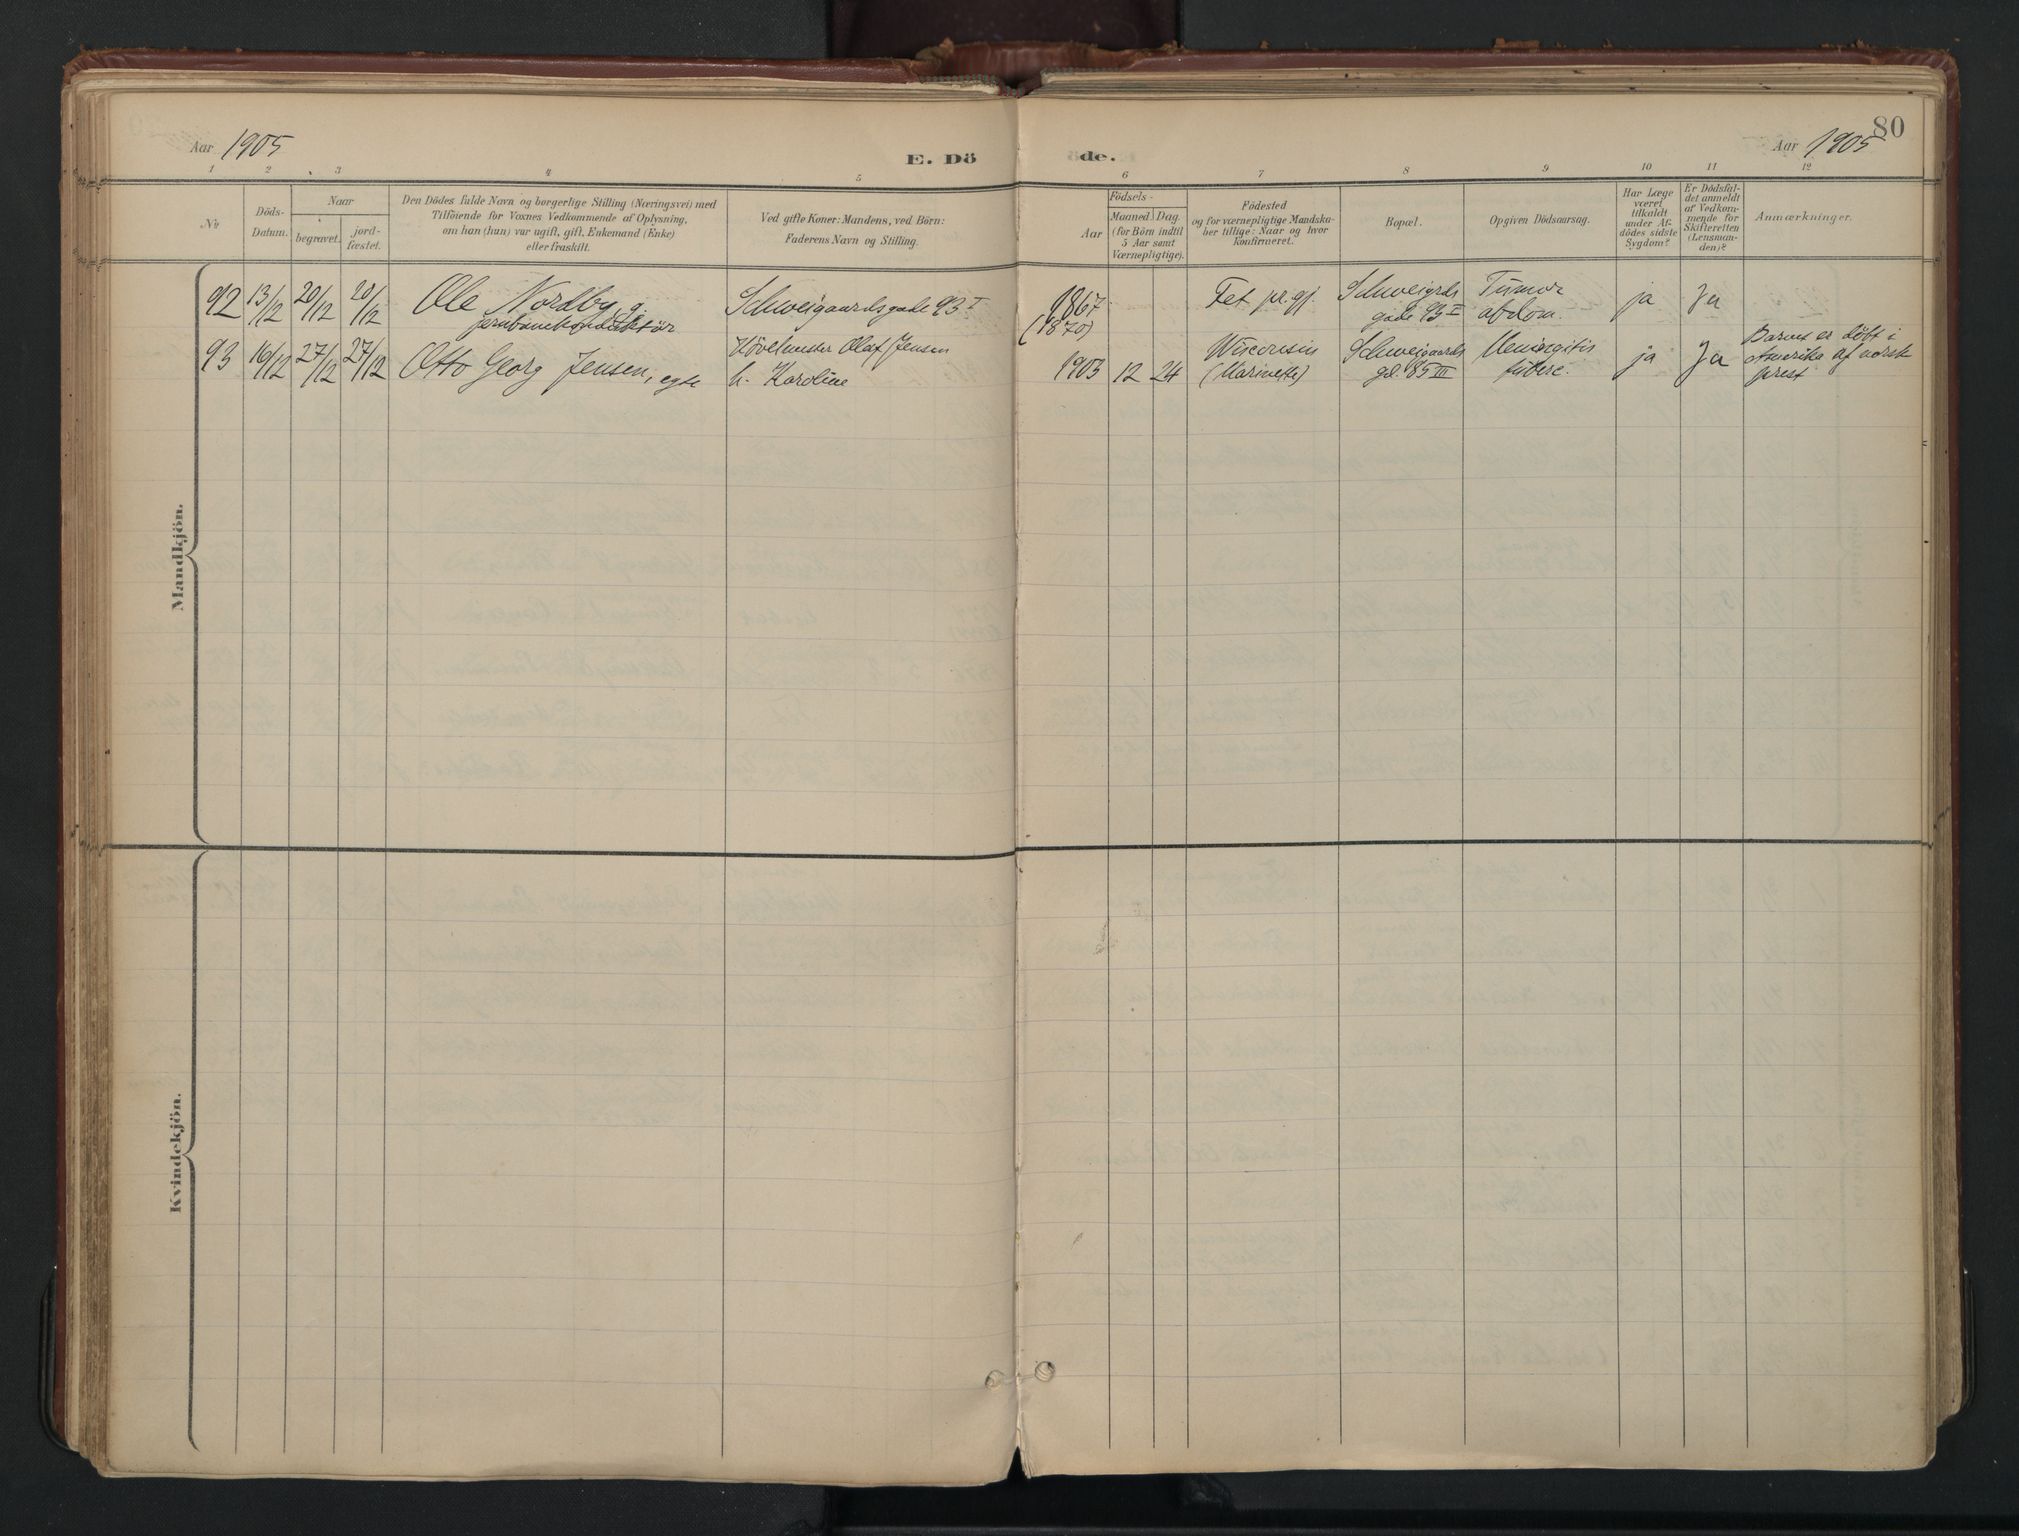 Aar 1905
E. Dö
de.
80
Aar 1905
1 2 3 4 5 6 7 8 9 10 11 12
Nr
Döds-
Datum.
Naar
begravet.
jord-
fæstet.
Den Dödes fulde Navn og borgerlige Stilling (Næringsvei) med
Tilföiende for Voxnes Vedkommende af Oplysning,
om han (hun) var ugift, gift, Enkemand (Enke)
eller fraskilt.
Ved gifte Koner: Mandens, ved Börn:
Faderens Navn og Stilling.
Födsels-
Aar
Maaned. Dag.
(for Börn indtil
5 Aar samt
Værnepligtige).
Födested
og for værnepligtige Mandska-
ber tillige: Naar og hvor
Konfirmeret.
Bopæl.
Opgiven Dödsaarsag.
Har Læge
været
tilkaldt
under Af-
dödes sidste
Sygdom?
Er Dödsfal-
det anmeldt
af Vedkom-
mende for
Skifteretten
(Lensman-
den)?
Anmærkninger.
Mandkjön.
92 13/12 20/12 20/12 Ole Nordby, g.
jernbanekonduktör
Schweigaardsgade 93 I
1867
(1870)
Fet pr.gj.
Schweigrds
gade 93 I
Tumor
abdom.
ja
Ja
93 16/12 27/12 27/12 Otto Georg Jensen, egte
Høvlmester Olaf Jensen
h. Karoline
1903 12 24
Wisconsin
(Marinette)
Schweigaards
gd. 85 III
Meningitis
tuberc.
ja
Ja
Barnet er döbt i
Amerika af norsk
prest
Kvindekjön.